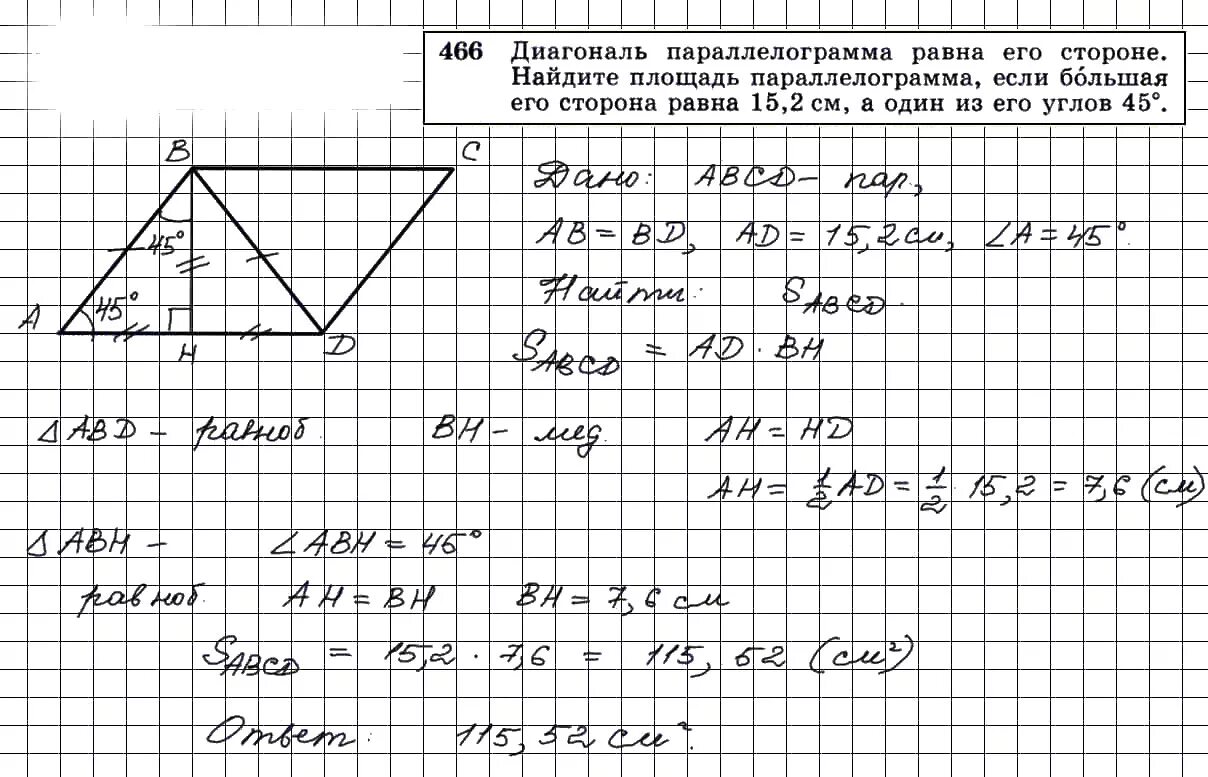 466 Диагональ параллелограмма равна его стороне.
Найдите площадь параллелограмма, если бо́льшая
его сторона равна 15,2 см, а один из его углов 45°.
B C
45°
45°
A H D
Дано: ABCD – пар.,
AB = BD, AD = 15,2 см, ∠A = 45°.
Найти: S_ABCD.
S_ABCD = AD · BH
△ABD – равноб. BH – мед. AH = HD
AH = 1/2 AD = 1/2 · 15,2 = 7,6 (см)
△ABH – ∠ABH = 45°
равноб. AH = BH BH = 7,6 см
S_ABCD = 15,2 · 7,6 = 115,52 (см²)
Ответ: 115,52 см².